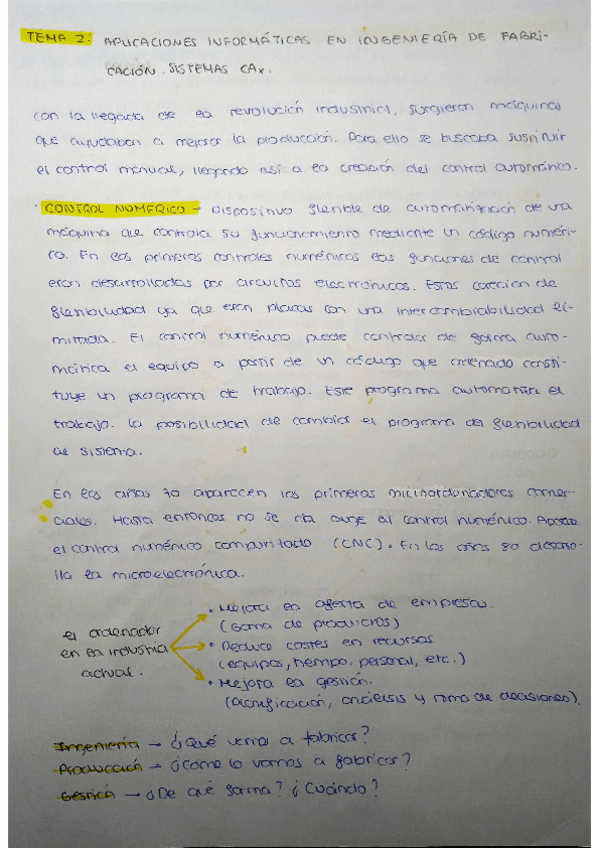 TEMA 2: APLICACIONES INFORMÁTICAS EN INGENIERÍA DE FABRI-
CACIÓN. SISTEMAS CAx.
Con la llegada de la revolución industrial, surgieron máquinas
que ayudaban a mejorar la producción. Para ello se buscaba sustituir
el control manual, llegando así a la creación del control automático.
· CONTROL NUMÉRICO - Dispositivo flexible de automatización de una
máquina que controla su funcionamiento mediante un código numéri-
co. En los primeros controles numéricos las funciones de control
eran desarrolladas por circuitos electrónicos. Estos carecían de
flexibilidad ya que eran placas con una intercambiabilidad li-
mitada. El control numérico puede controlar de forma auto-
mática el equipo a partir de un código que ordenado consti-
tuye un programa de trabajo. Este programa automatiza el
trabajo. La posibilidad de cambiar el programa da flexibilidad
al sistema.
En los años 70 aparecen los primeros microordenadores comer-
ciales. Hasta entonces no se da auge al control numérico. Aparece
el control numérico computarizado (CNC). En los años 80 desarro-
lla la microelectrónica.
el ordenador
en la industria
actual.
• Mejora la oferta de empresa.
(Gama de productos)
• Reduce costes en recursos
(equipos, tiempo, personal, etc.)
• Mejora la gestión.
(planificación, análisis y toma de decisiones).
Ingeniería → ¿Qué vamos a fabricar?
Producción → ¿Cómo lo vamos a fabricar?
Gestión → ¿De qué forma? ¿Cuándo?